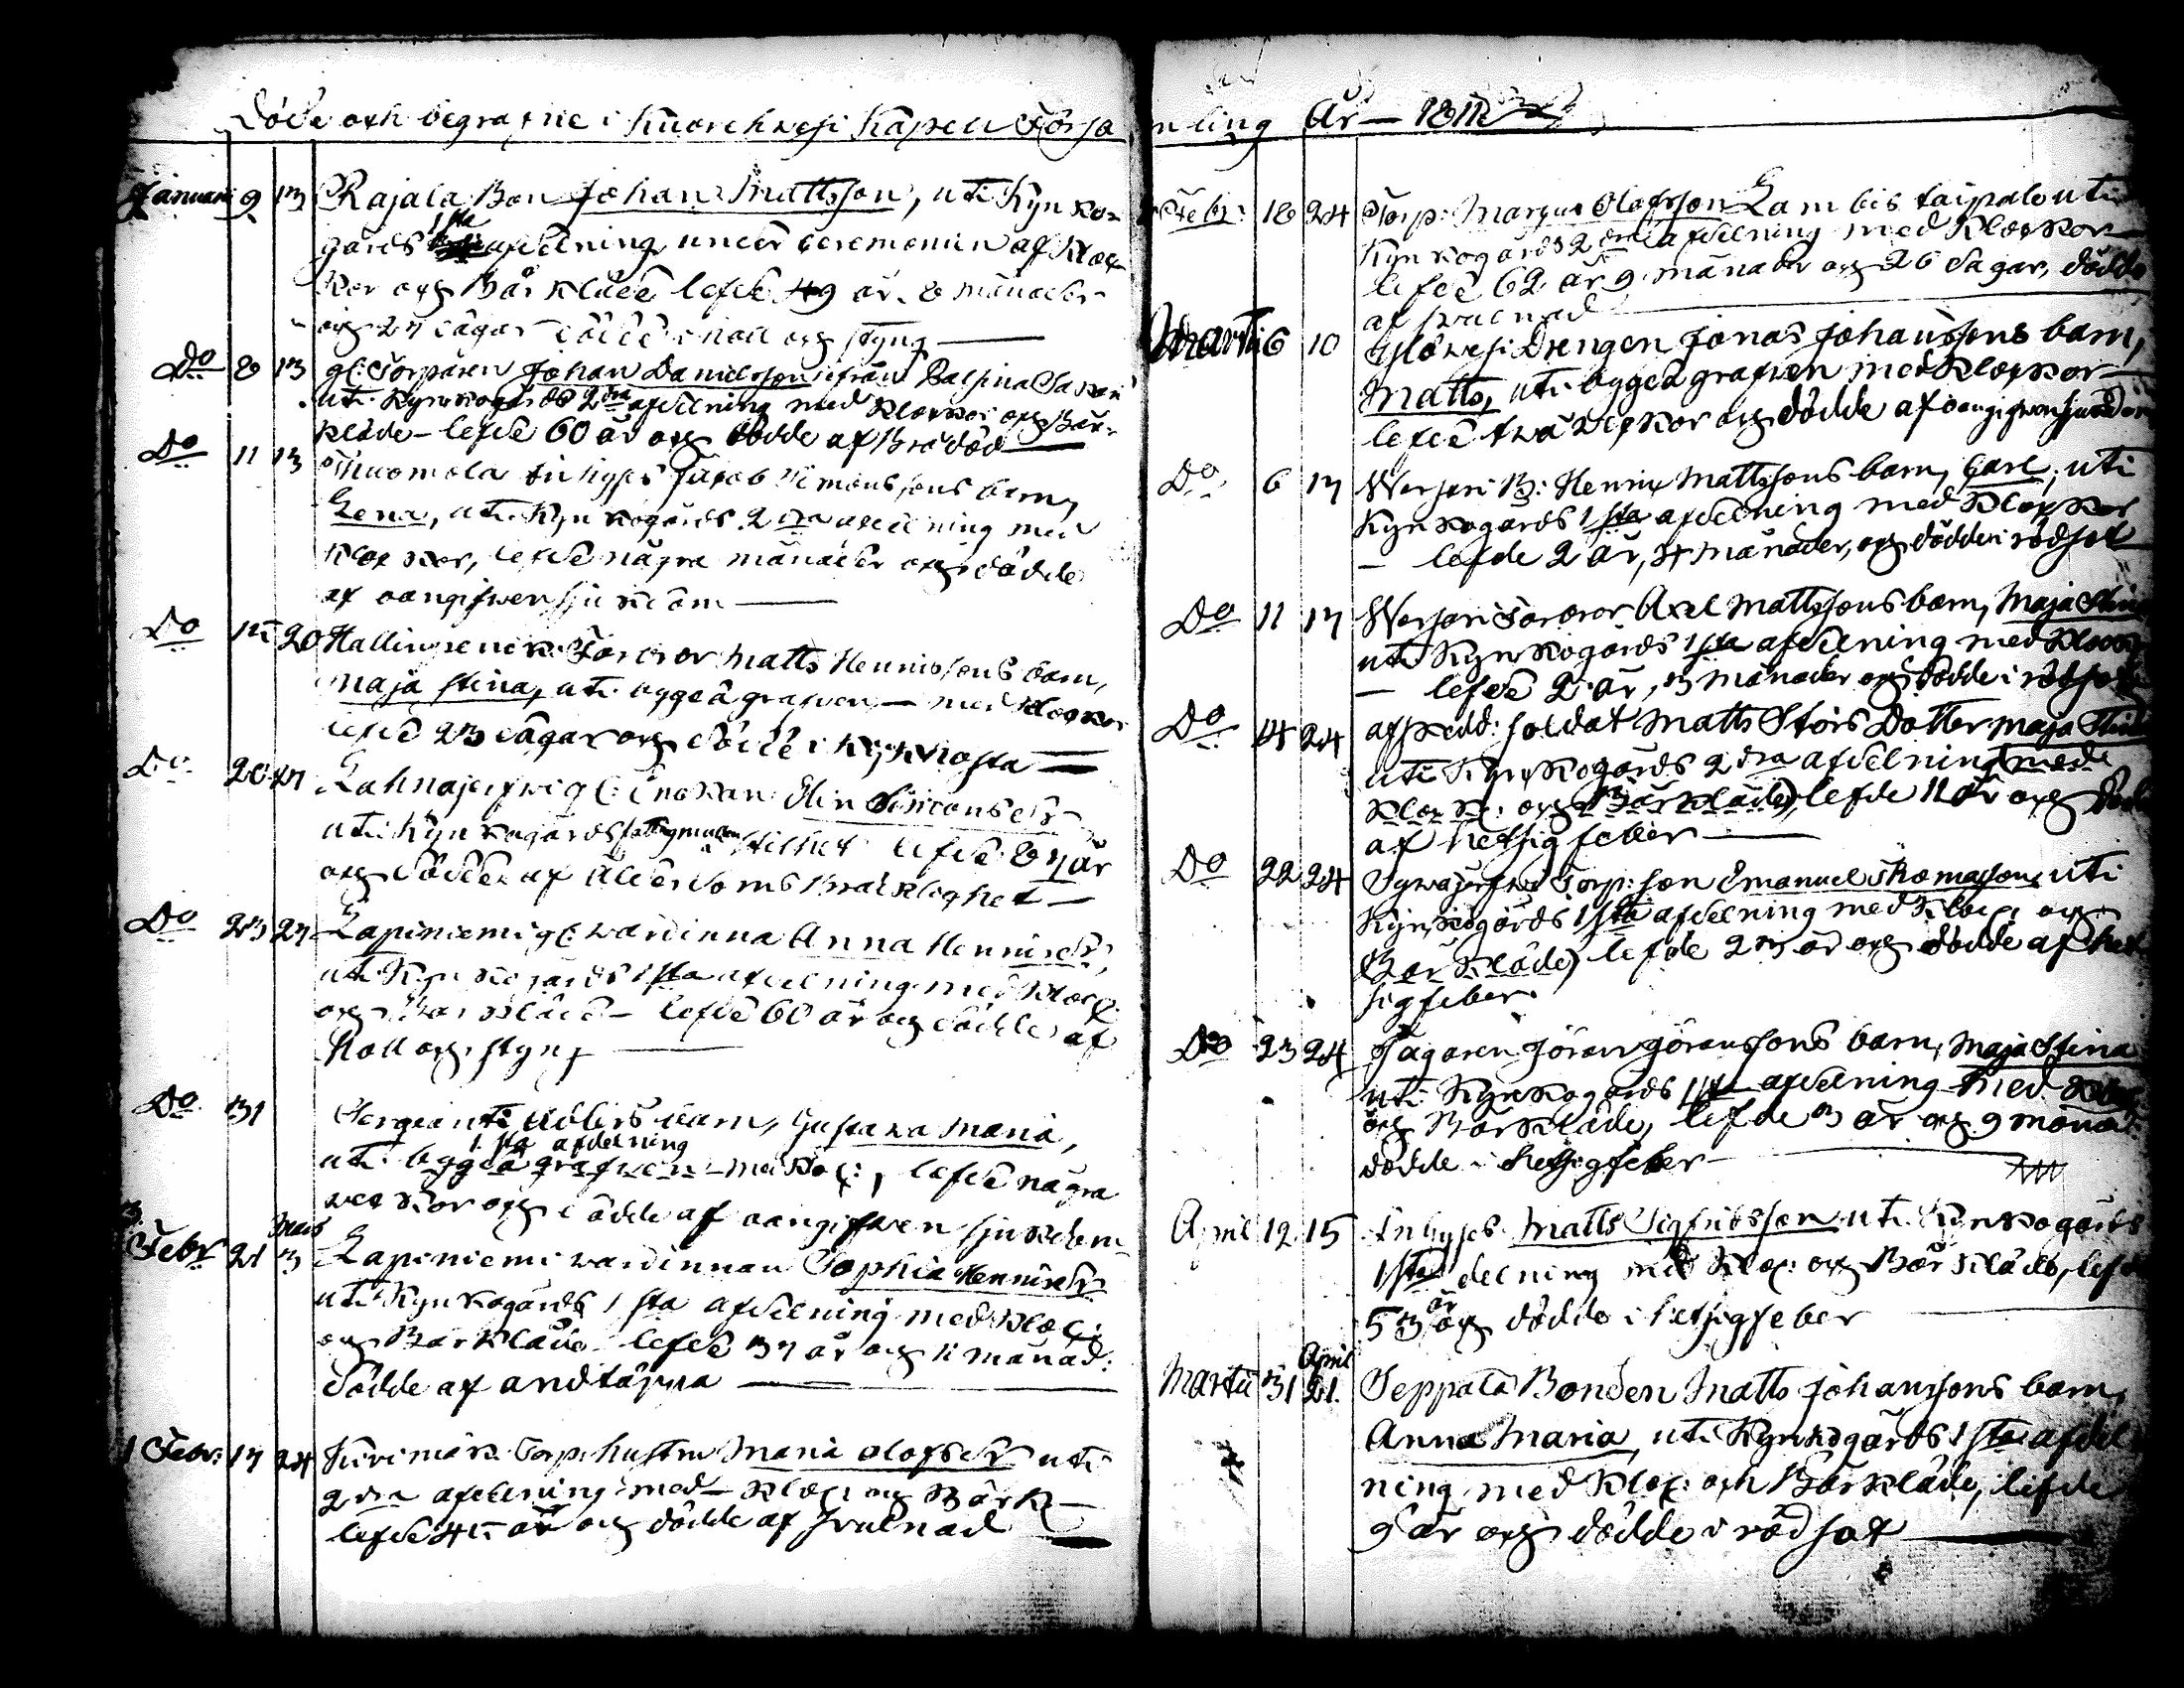 Döde och begrafne i Kuorehwesi Kapell Församling År 1811
Januari 9 13 Rajala Bon Johan Mattsson, uti Kyrko-
gårds 1sta afdelning under ceremonien af Kloc-
kor och Bårkläde lefde 49 år 8 månader
och 27 dagar dödde i håll och styng
Do 8 13 gl: Torparen Johan Danielsson ifrån
uti Kyrkogårds 2dra afdelning med Klockor och Bår-
kläde - lefde 60 år och dödde af Brådöd
Do 11 13 Inhyses Jacob Simonssons barn,
Lena, uti Kyrkogårds 2dra afdelning med
Klockor, lefde några månader och dödde
af oangifwen sjukdom
Do 15 20 Torcror Matts Henricssons barn,
Maja Stina, uti öppeå grafwen - med Klockor
lefde 23 dagar och dödde i Kikhosta
Do 20 Enkan Elin Simonsdr
uti Kyrkogårds stilhet lefde 87 år
och dödde af Ålderdoms Bräcklighet
Do 23 27 Lapiniemi gl: wärdinna Anna Henricsdr,
uti Kyrkogårds 1sta afdelning med Kloc:
och Bårkläde - lefde 60 år och dödde af
Håll och styng
Do 31 Sergeanti barn, Gustava Maria,
1sta afdelning
uti öppeå grafwen - med Kloc:, lefde några
weckor och dödde af oangifwen sjukdom
Mars
Febr 21 3 Lapiniemi wärdinnan Sophia Henricsdr
uti Kyrkogårds 1sta afdelning med Kloc:
och Bårkläde lefde 37 år och 11 månad:
dödde af andtäppa
Febr: 17 24 Torp: hustru Maria Olofsdr uti
2dra afdelning med Kloc: och Bårk-
lefde 45 år och dödde af Swulnad
Febr: 18 24 Torp: Marcus Olofsson Lambis taipale uti
Kyrkogårds 2dra afdelning med Klockor
lefde 62 år 9 månader och 26 dagar, dödde
af swulnad
Martii 6 10 Drengen Jonas Johanssons barn,
Matts, uti öppeå grafwen med Klockor
lefde twå weckor och dödde af oangifwen sjukdom
Do 6 17 B: Henric Mattssons barn, Carl, uti
Kyrkogårds 1sta afdelning med Klockor
- lefde 2 år, 4 månader, och dödde i rödsot
Do 11 17 Axel Mattssons barn, Maja Stina
uti Kyrkogårds 1sta afdelning med Klockor
- lefde 2 år, 3 månader och dödde i rödsot
Do 14 24 afskedd: Soldat Matts Störs Dotter Maja Stina
uti Kyrkogårds 2dra afdelning med
Klock: och Bårkläde, lefde 11 år och dödde
af hetsigfeber
Do 22 24 Torp: son Emanuel Thomasson, uti
Kyrkogårds 1sta afdelning med Kloc: och
Bårkläde, lefde 23 år och dödde af het-
sigfeber
Do 23 24 Jägaren Jöran Jöranssons barn, Maja Stina
uti Kyrkogårds 1sta afdelning med Kloc:
och Bårkläde, lefde 3 år och 9 månad:
dödde i hetsigfeber
April 12 15 Inhyses Matts Sigfridsson uti Kyrkogårds
1sta delning med Kloc: och Bårkläde, lefde
53 år och dödde i hetsigfeber
April
Martii 31 21. Seppälä Bonden Matts Johanssons barn,
Anna Maria, uti Kyrkogårds 1sta afdel-
ning med Kloc: och Bårkläde, lefde
9 år och dödde i rödsot